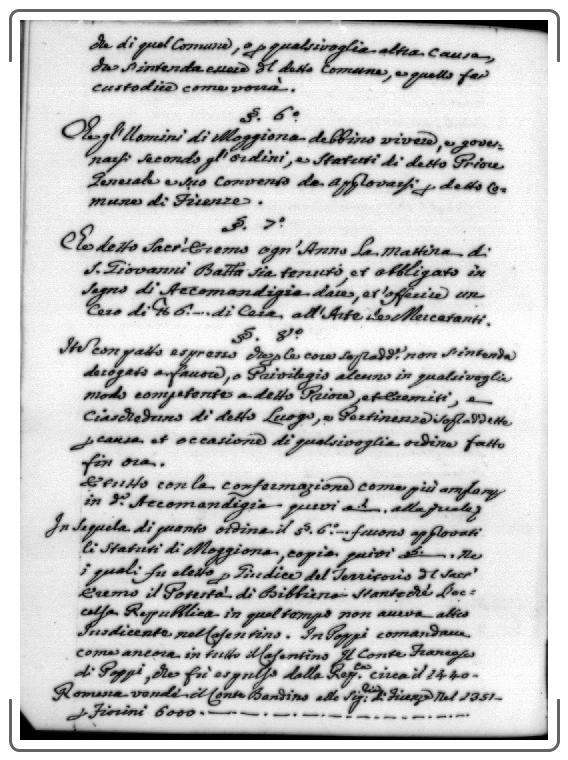 che di quel Comune, o p qualsivoglia altra causa,
da s'intenda essere del detto Comune, e quello far
custodire come vorrà.
§. 6.º
Che gl'Uomini di Moggiona debbino vivere, e gover-
narsi secondo gl'ordini, e statuti di detto Priore
Generale e suo Convento da approvarsi p detto Co-
mune di Firenze.
§. 7.º
Che detto Sacr'Eremo ogn'Anno La mattina di
S. Giovanni Batta sia tenuto, et obbligato in
segno di Accomandigia dare, et offerire un
Cero di 6. di Cera all'Arte de Mercatanti.
§. 8.º
Ite con patto espresso che p le cose sopradd. non s'intenda
derogato a favore, o Privilegio alcuno in qualsivoglia
modo competente a detto Priore, et Eremiti, e
Ciascheduno di detto Luogo, e Pertinenze sopraddette
p causa et occasione di qualsivoglia ordine fatto
fin ora.
E tutto con la confermazione come più
in d.ª Accomandigia quivi alla quale
In sequela di quanto ordina il §. 6.º furono approvati
li Statuti di Moggiona, copia quivi Ne
i quali fu eletto p Giudice del Territorio del Sacr'
Eremo il Potestà di Bibbiena stante che l'ec-
celsa Repubblica in quel tempo non aveva altro
Iusdicente nel Casentino. In Poppi comandava
come ancora in tutto il Casentino il Conte Francesco
di Poppi, che fu espulso dalla Rep.ca circa il 1440
Romena vendè il Conte Bandino alla Sig.ria di Firenze Nel 1351
p Fiorini 6000